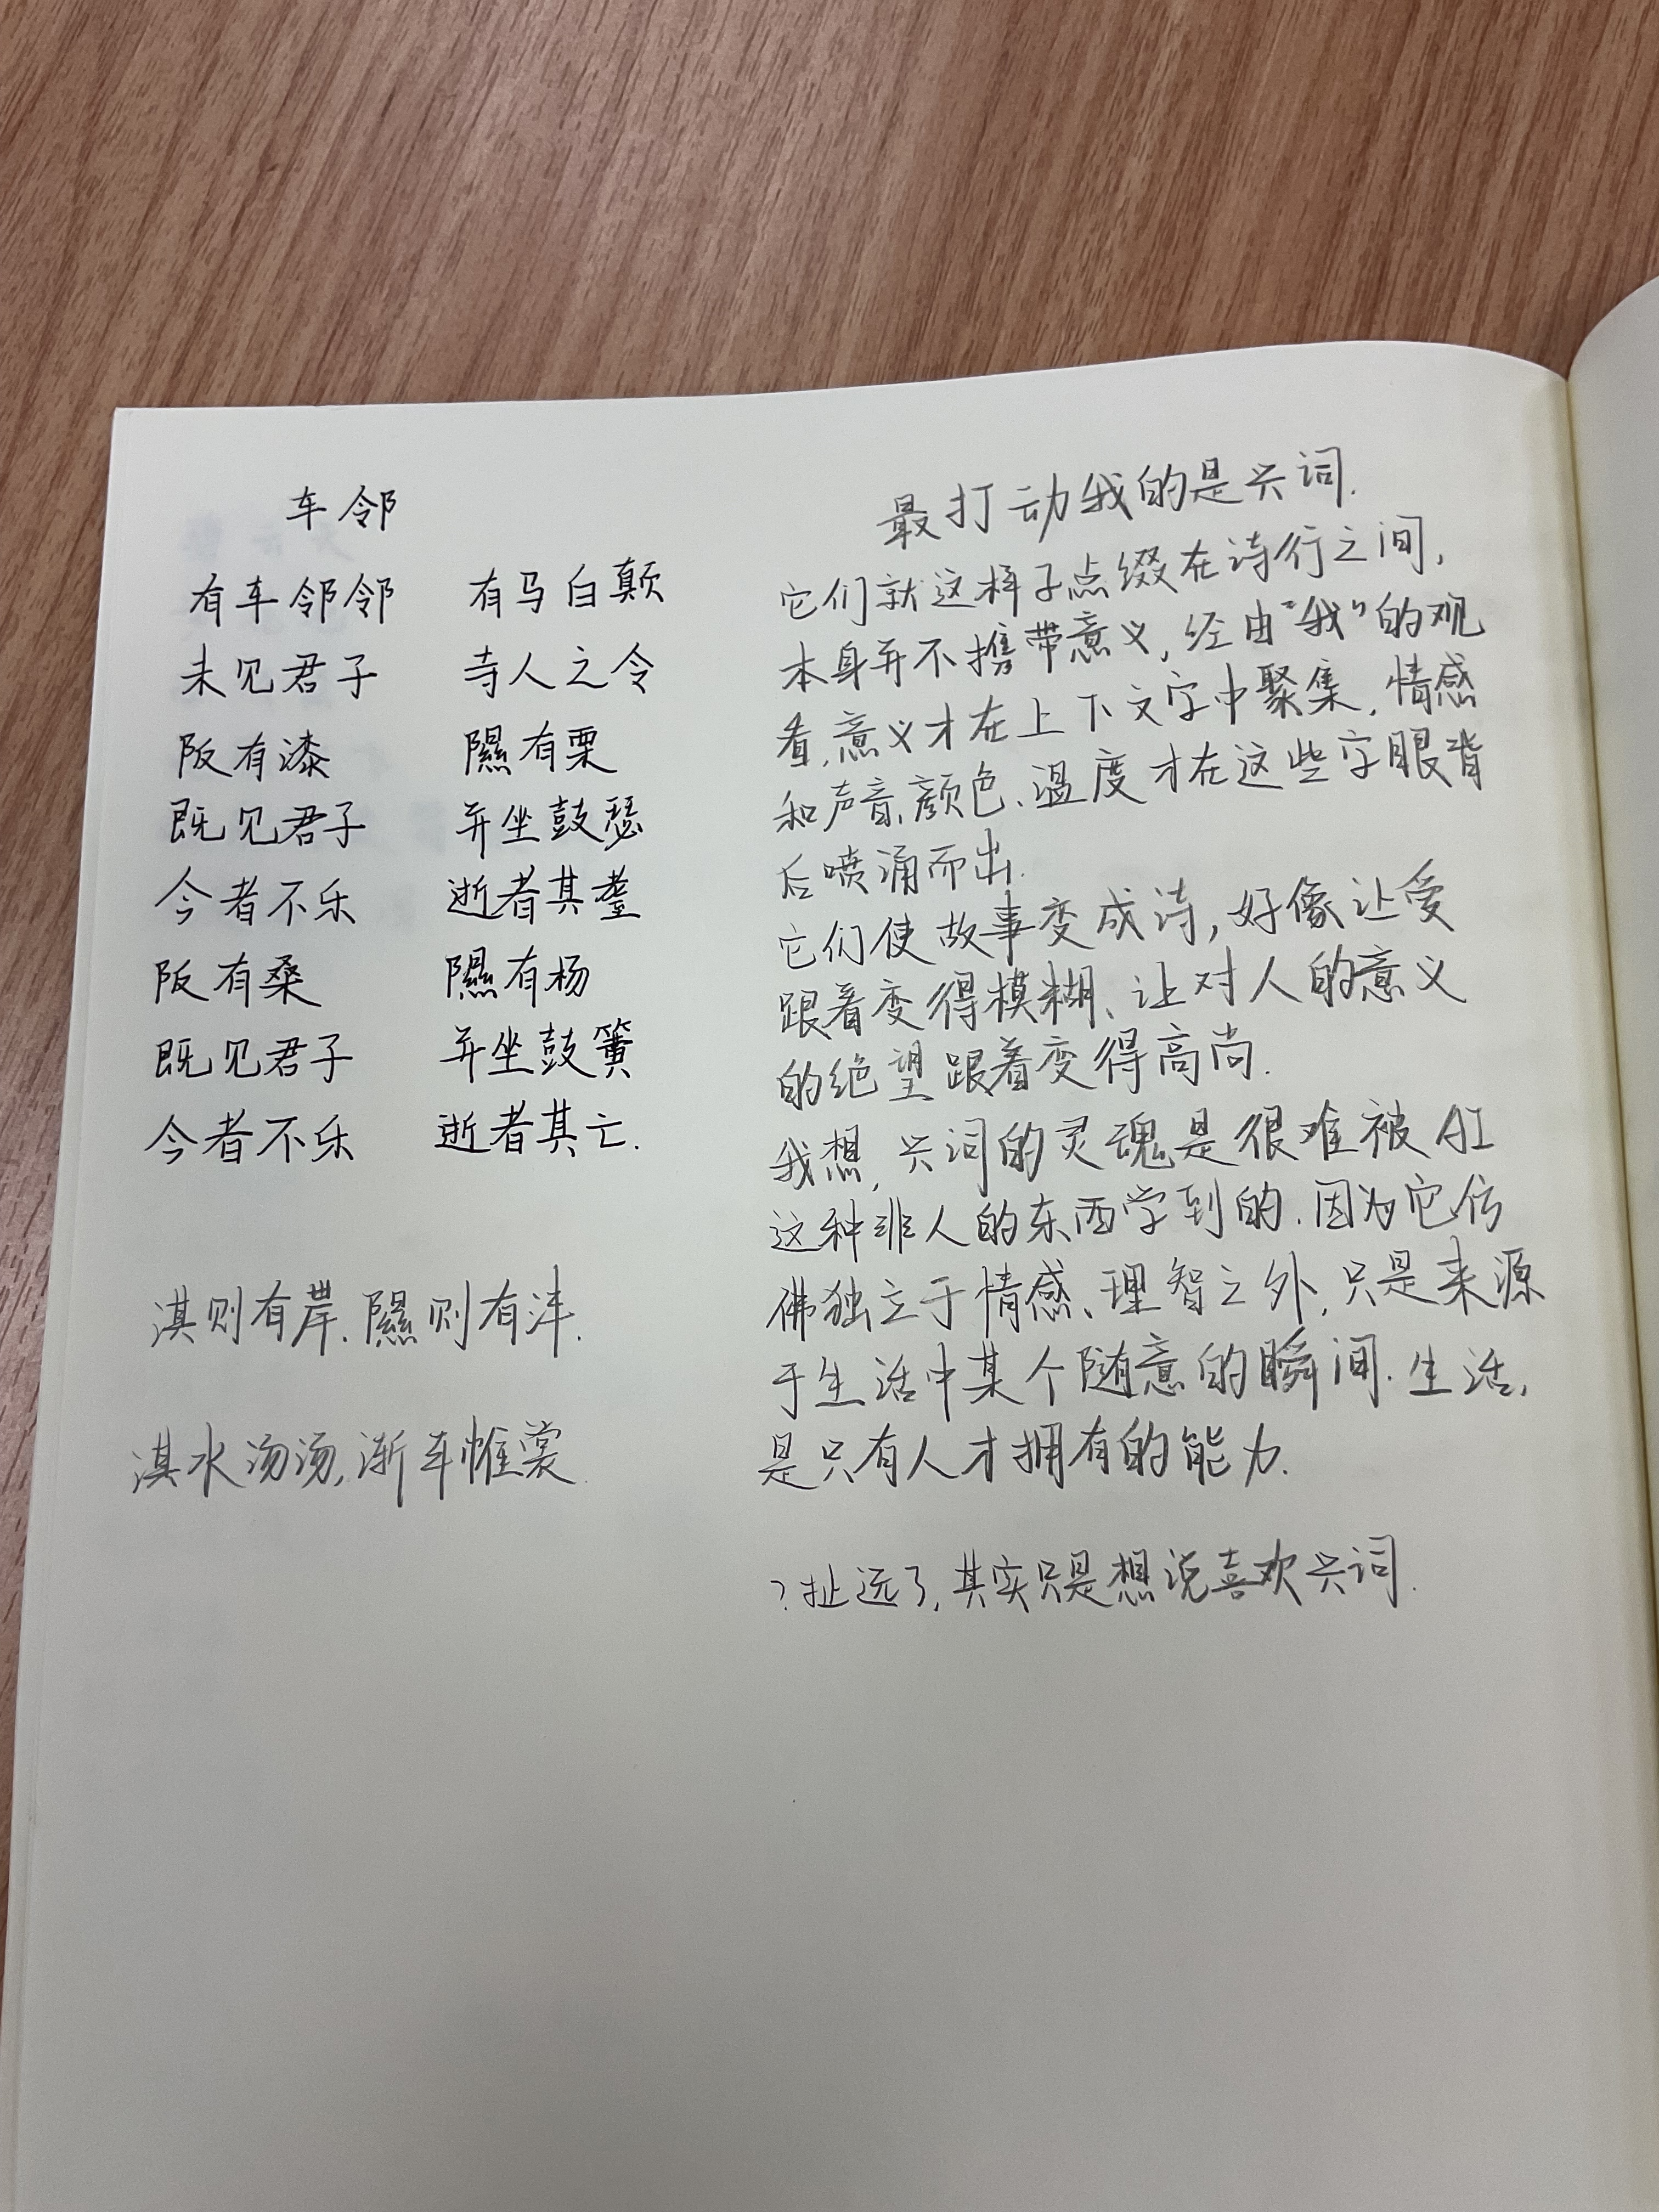 车邻
有车邻邻 有马白颠
未见君子 寺人之令
阪有漆 隰有栗
既见君子 并坐鼓瑟
今者不乐 逝者其耋
阪有桑 隰有杨
既见君子 并坐鼓簧
今者不乐 逝者其亡.
淇则有岸.隰则有泮.
淇水汤汤,渐车帷裳.
最打动我的是兴词.
它们就这样子点缀在诗行之间,
本身并不携带意义,经由“我”的观
看,意义才在上下文字中聚集,情感
和声音、颜色、温度才在这些字眼背
后喷涌而出.
它们使故事变成诗,好像让爱
跟着变得模糊、让对人的意义
的绝望跟着变得高尚.
我想,兴词的灵魂是很难被AI
这种非人的东西学到的.因为它仿
佛独立于情感、理智之外,只是来源
于生活中某个随意的瞬间.生活,
是只有人才拥有的能力.
?扯远了,其实只是想说喜欢兴词.